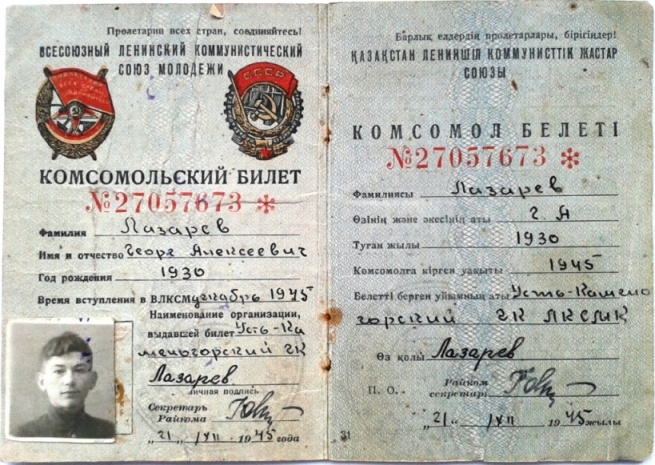 Пролетарии всех стран, соединяйтесь!
ВСЕСОЮЗНЫЙ ЛЕНИНСКИЙ КОММУНИСТИЧЕСКИЙ
СОЮЗ МОЛОДЕЖИ
СССР
КОМСОМОЛЬСКИЙ БИЛЕТ
№27057673 *
Фамилия Лазарев
Имя и отчество Георг Алексеевич
Год рождения 1930
Время вступления в ВЛКСМ декабрь 1945
Наименование организации,
выдавшей билет Усть-Ка
меногорский ГК
Лазарев
Личная подпись
Секретарь
Райкома
"21" XII 1945 года
Барлық елдердің пролетарлары, бірісіңдер!
ҚАЗАҚСТАН ЛЕНИНШІЛ КОММУНИСТТІК ЖАСТАР
СОЮЗЫ
КОМСОМОЛ БЕЛЕТІ
№27057673 *
Фамилиясы Лазарев
Өзінің және әкесінің аты Г. А
Туған жылы 1930
Комсомолга кірген уақыты 1945
Белетті берген ұйымның аты Усть-Камено
горский ГК ЛКСМК
Өз қолы Лазарев
П. О. Райком
секретари
"21" XII 1945 жылы
31